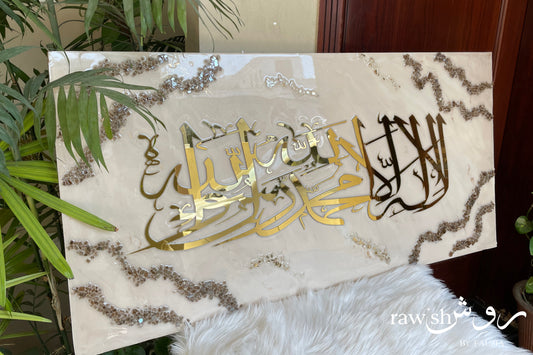 لا إله إلا الله محمد رسول الله
rawish روش
BY FATIMA